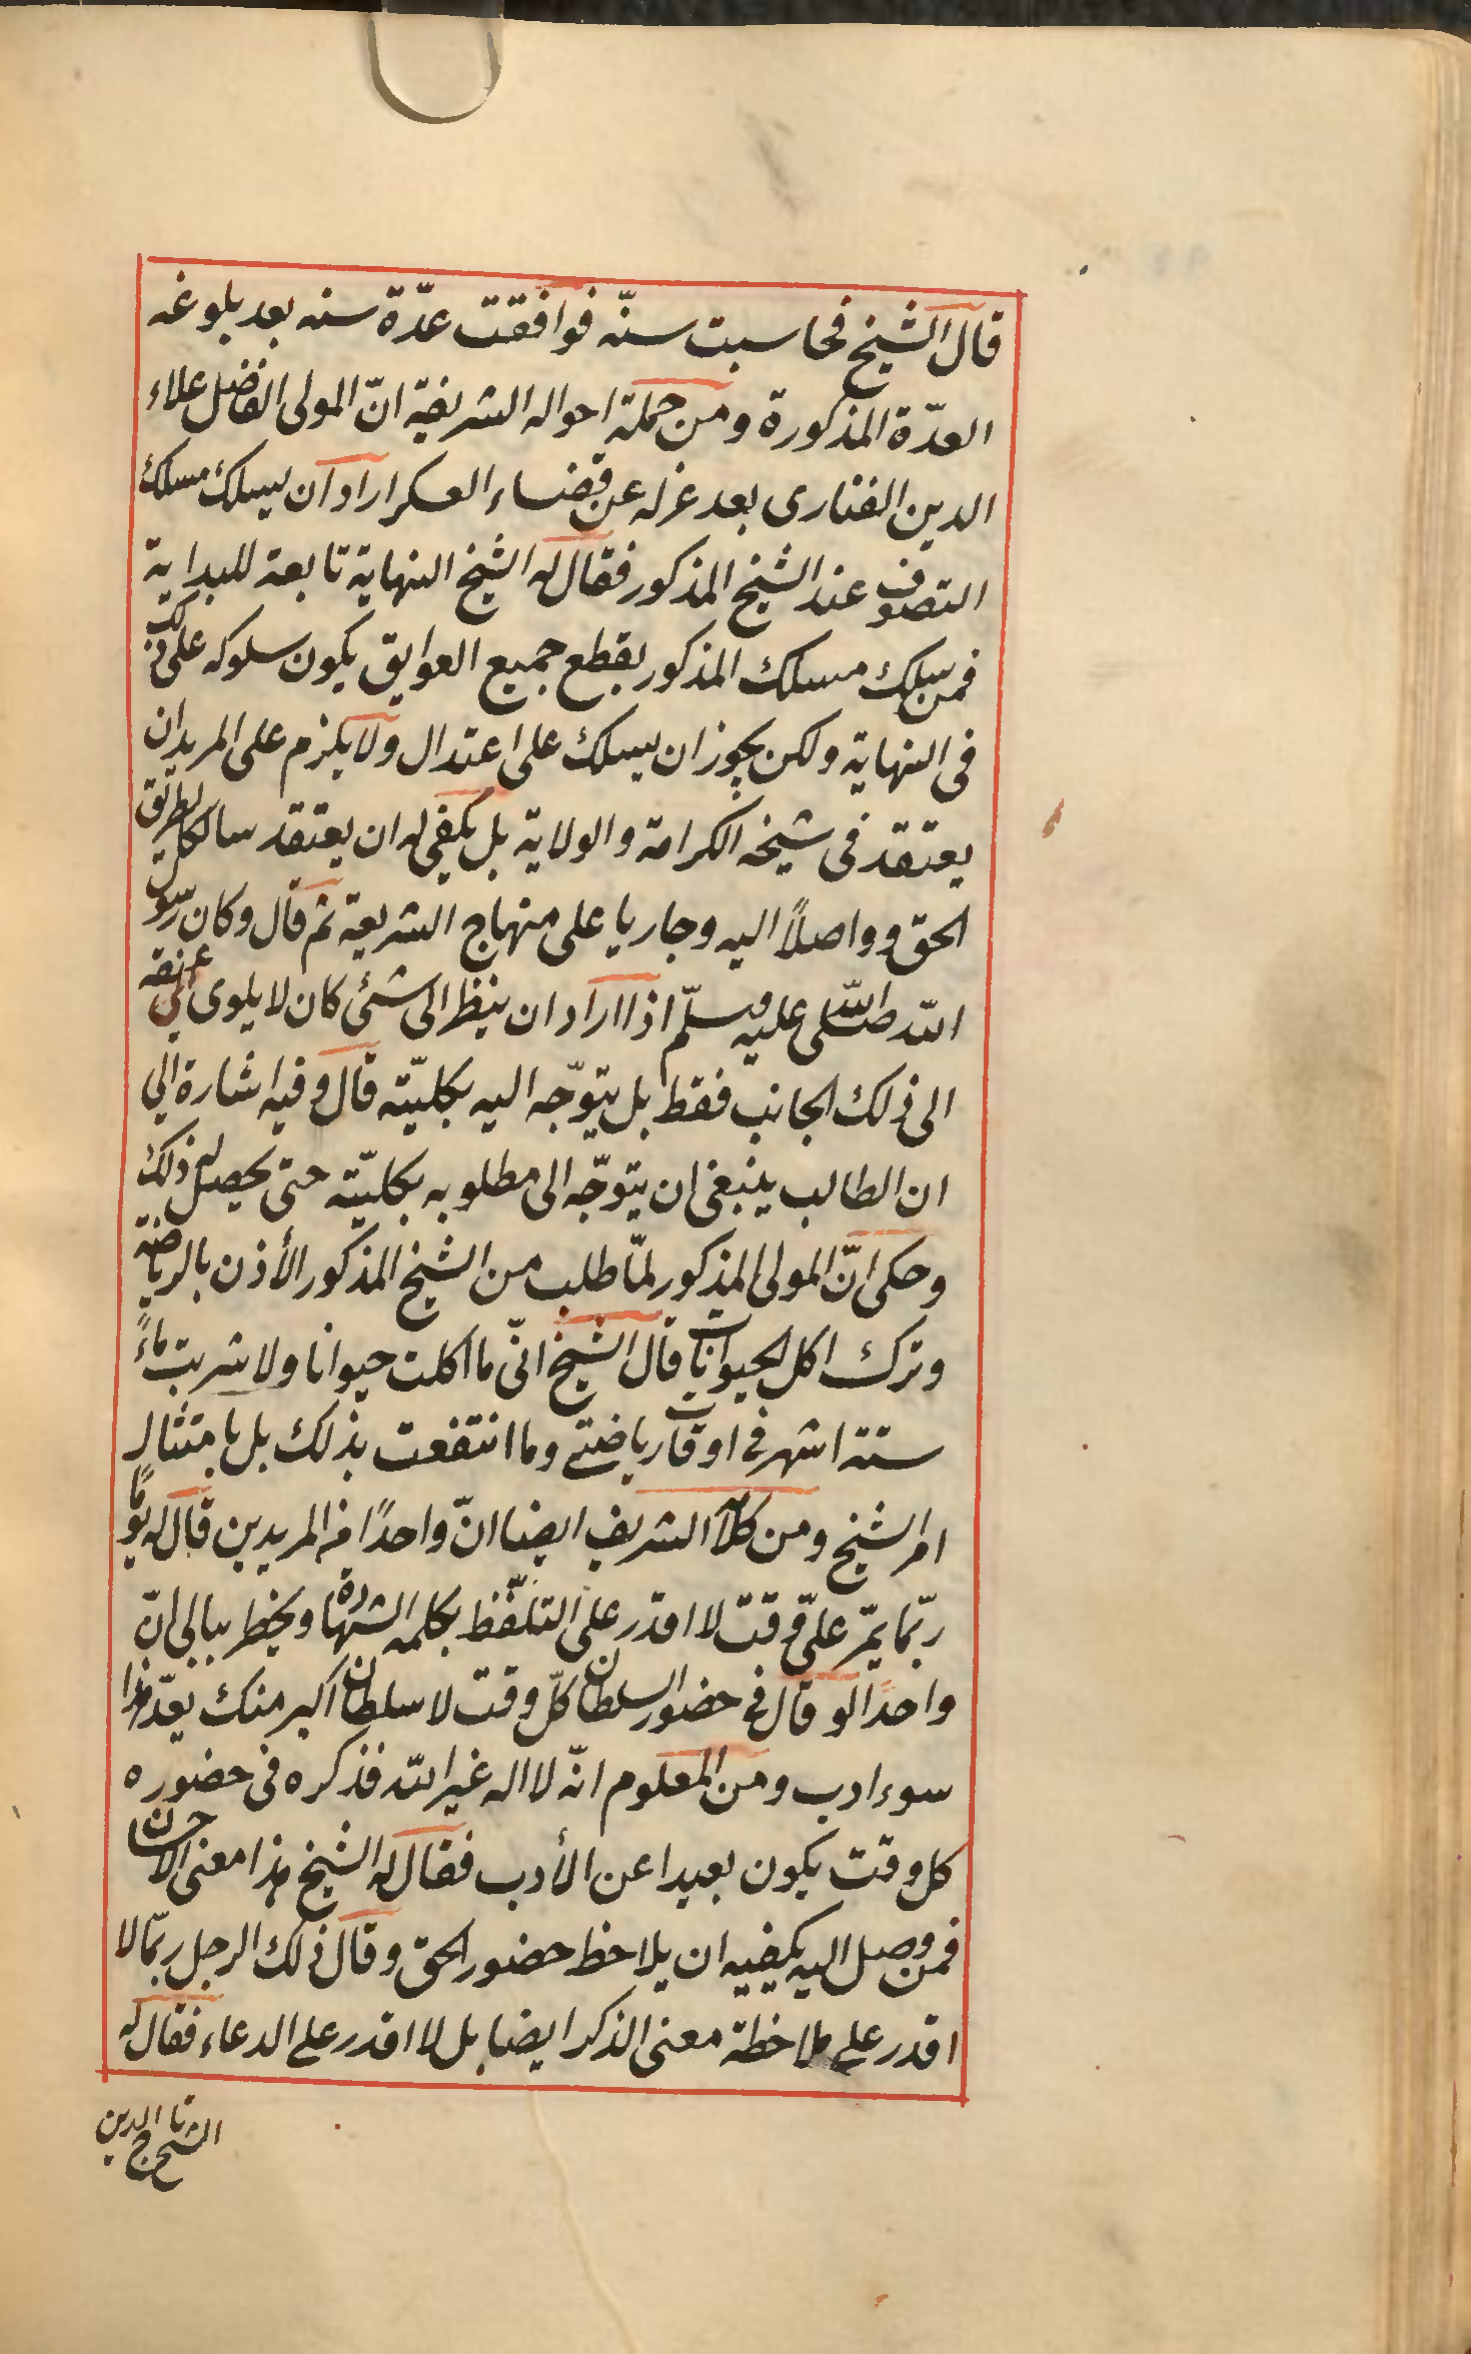 قال الشيخ فحاسبت سنّه فوافقت عدّة سنه بعد بلوغه
العدّة المذكورة ومن جملة احواله الشريفة انّ المولى الفاضل علاء
الدين الفنارى بعد عزله عن قضاء العسكر اراد ان يسلك مسلك
التصوف عند الشيخ المذكور فقال له الشيخ النهاية تابعة للبداية
فمن سلك مسلك المذكور بقطع جميع العوايق يكون سلوكه على ذلك
فى النهاية ولكن يجوز ان يسلك على اعتدال ولا يلزم على المريد ان
يعتقد فى شيخه الكرامة والولاية بل يكفى له ان يعتقد سالكا لطريق
الحق وواصلاً اليه وجاريا على منهاج الشريعة ثم قال وكان رسول
الله صلى الله عليه وسلّم اذا اراد ان ينظر الى شئ كان لا يلوى عنقه الى
الى ذلك الجانب فقط بل يتوجّه اليه بكليّته قال وفيه اشارة الى
ان الطالب ينبغى ان يتوجّه الى مطلوبه بكليّته حتى يحصل له ذلك
وحكى انّ المولى المذكور لمّا طلب من الشيخ المذكور الأذن بالرياضة
وترك اكل الحيوانات قال الشيخ انّى ما اكلت حيوانا ولا شربت ماءً
ستة اشهر فى اوقات رياضتى وما انتفعت بذلك بل بامتثال
امر الشيخ ومن كلامه الشريف ايضا انّ واحدًا من المريدين قال له يومًا
ربّما يمرّ علىّ وقت لا اقدر على التلفّظ بكلمه الشهادة ويخطر ببالى انّ
واحدًا لو قال فى حضور السلطان كلّ وقت لا سلطان اكبر منك يعدّ هذا
سوء ادب ومن المعلوم انّه لا اله غير الله فذكره فى حضوره
كل وقت يكون بعيدا عن الأدب فقال له الشيخ هذا معنى الاحسان
فمن وصل اليه يكفيه ان يلاحظ حضور الحق وقال ذلك الرجل ربّما لا
اقدر على ملاحظة معنى الذكر ايضا بل لا اقدر على الدعاء فقال له
الشيخ تاج الدين